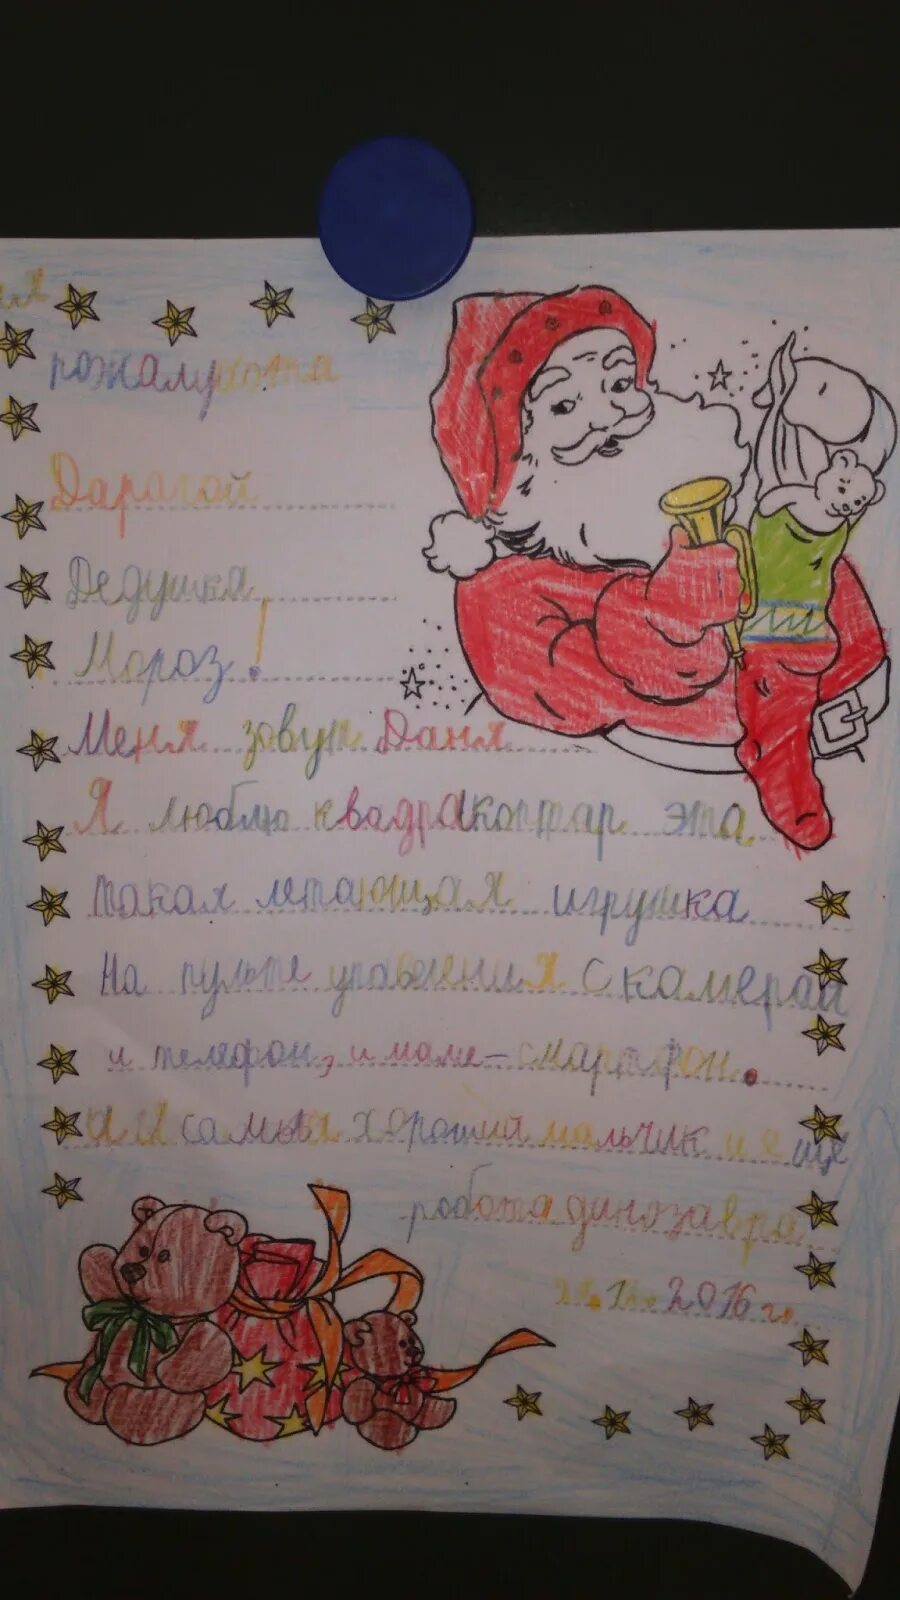 Дарагой
Дедушка
Мороз!
Меня зовут Даня
Я люблю квадракоптар эта
такая летающая игрушка
На пульте управения с камерай
и телефон, и маме - смартфон.
а я самый хороший мальчик и ещё
робота динозавра
2016 г.